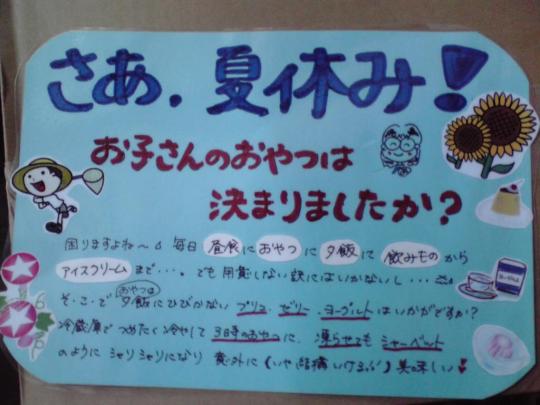 さあ、夏休み!
お子さんのおやつは
決まりましたか?
困りますよね〜。毎日 昼食に おやつに 夕飯に 飲みもの から
アイスクリーム まで・・・。でも用意しない訳にはいかないし・・・
おやつは
そ・こ・で 夕飯にひびかない プリン・ゼリー・ヨーグルト はいかがですか?
冷蔵庫でつめたく冷やして 3時のおやつに、凍らせても シャーベット
のように シャリシャリになり 意外に(いや結構いけるぅ)美味しい